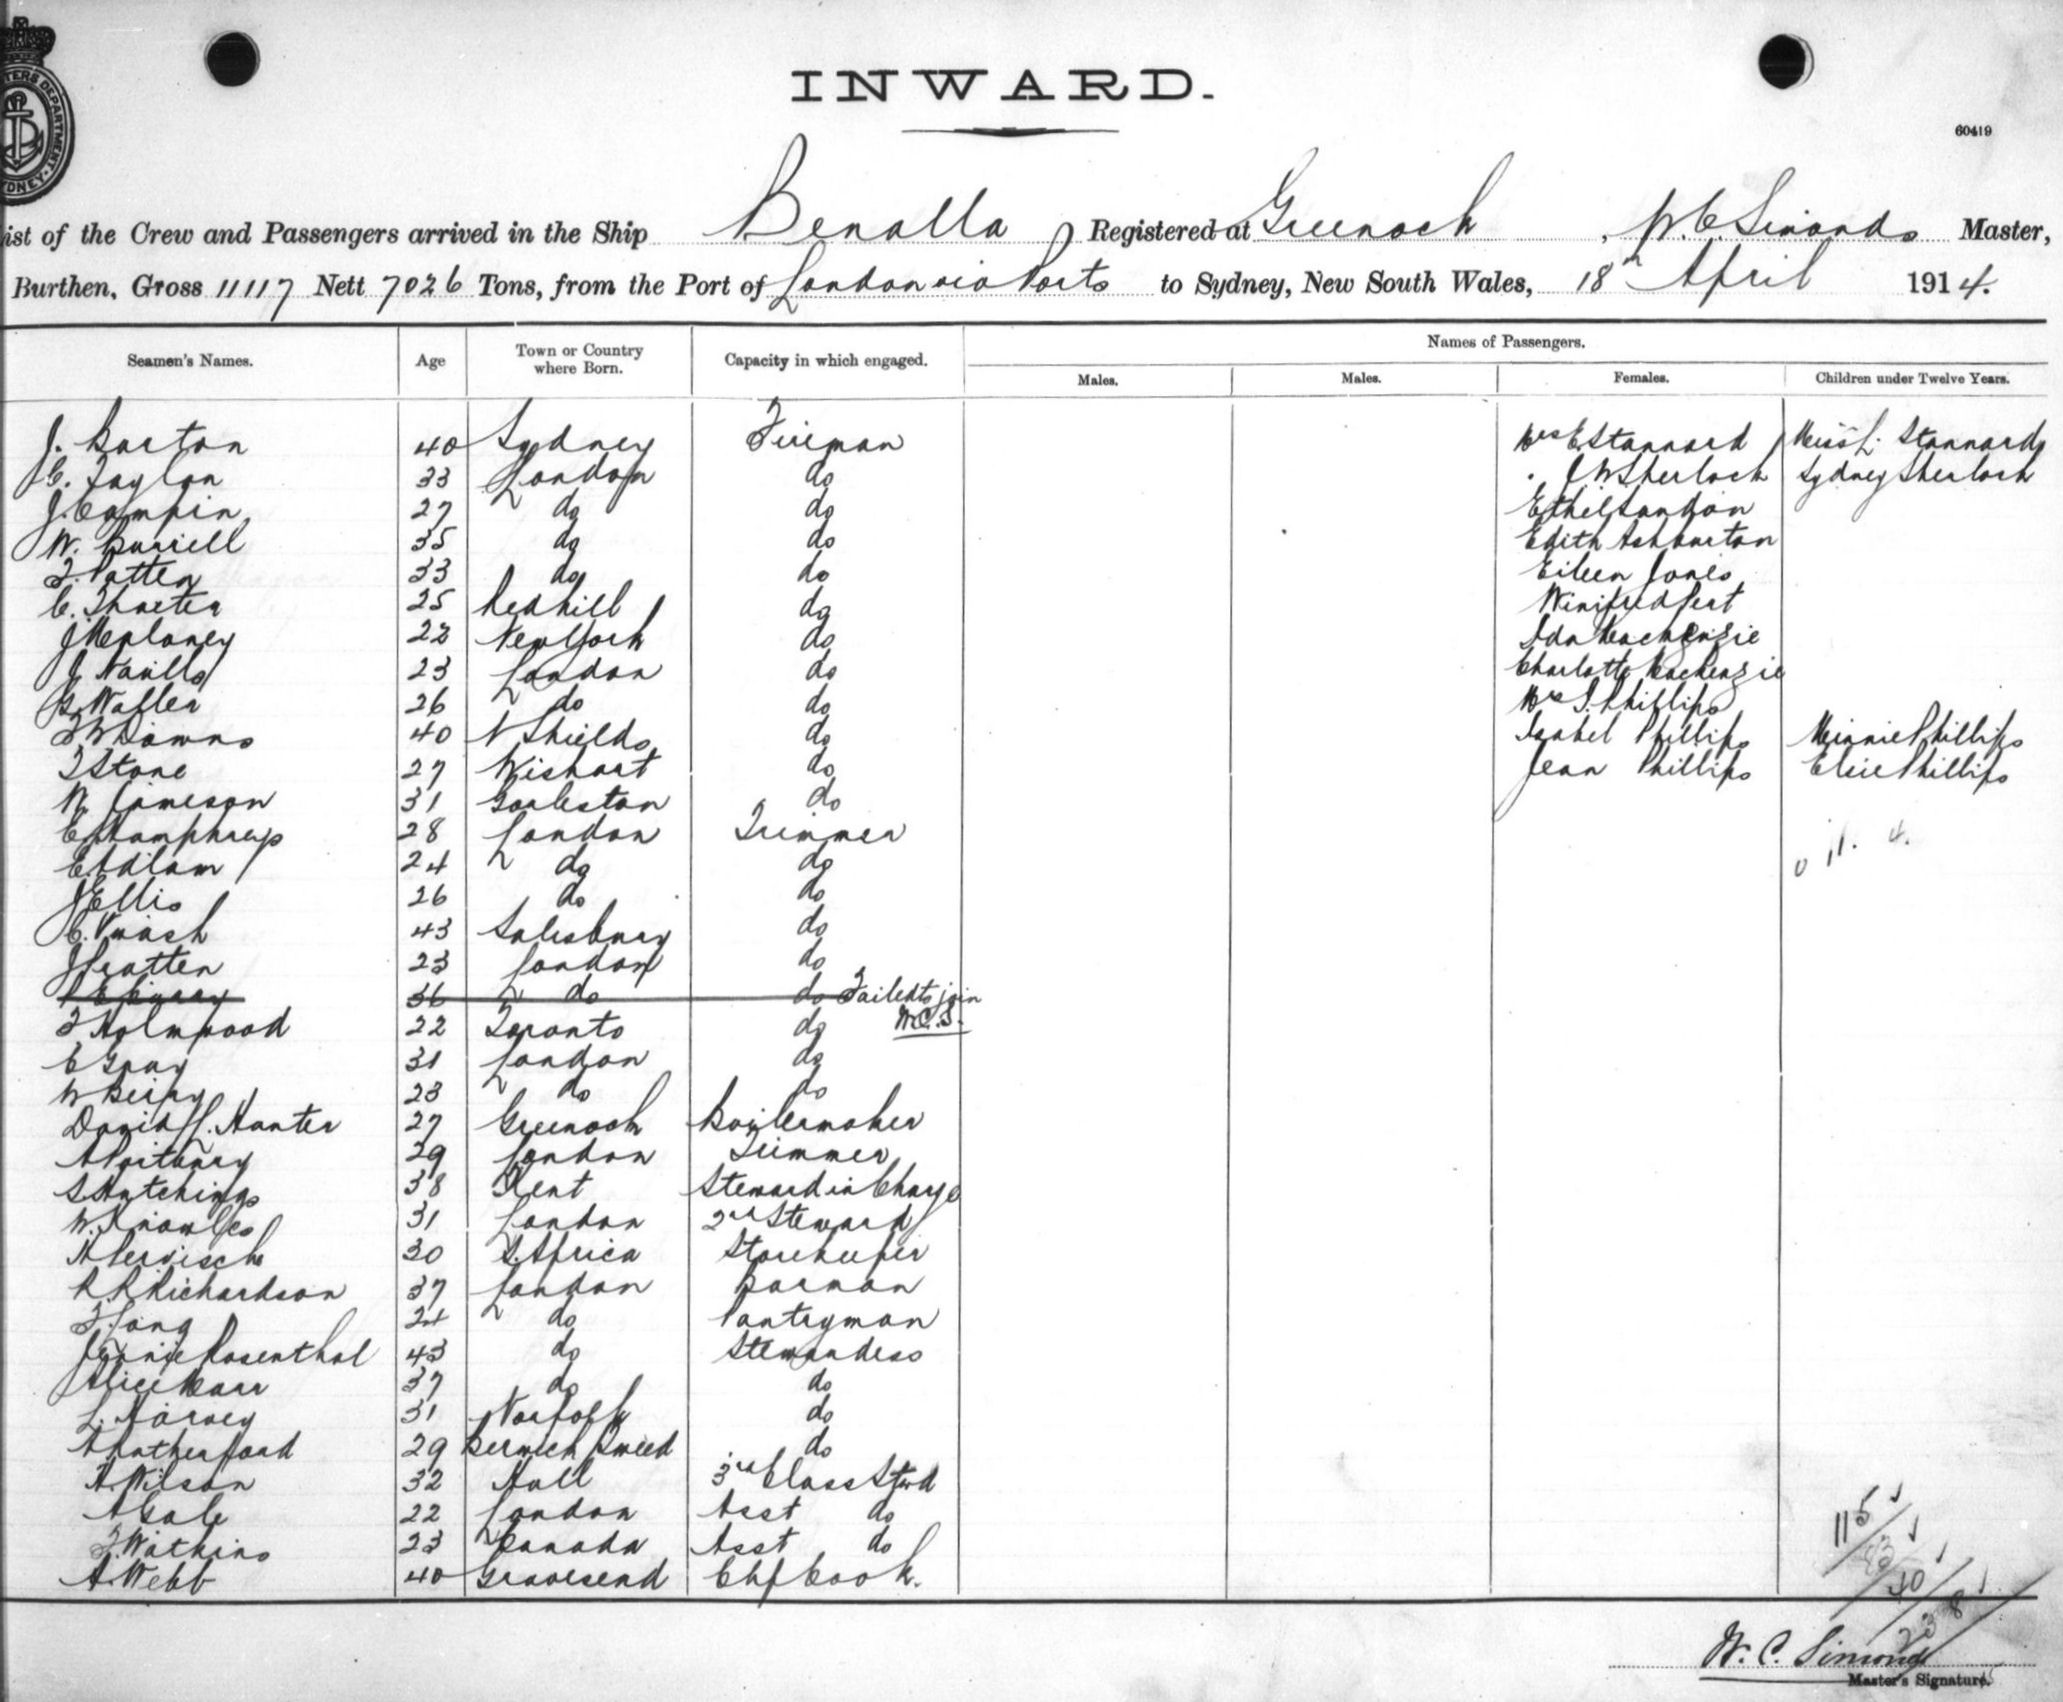 TERS DEPARTMENT.
YDNEY.
INWARD.
60419
ist of the Crew and Passengers arrived in the Ship Benalla Registered at Greenock, W.C. Simonds Master,
Burthen, Gross 11117 Nett 7026 Tons, from the Port of London via Ports to Sydney, New South Wales, 18th April 1914.
Names of Passengers.
Seamen's Names. Age Town or Country where Born. Capacity in which engaged. Males. Males. Females. Children under Twelve Years.
J. Barton 40 Sydney Fireman Mrs E Stannard Miss L. Stannard
C. Taylor 33 London do " J W Sherlock Sydney Sherlock
J. Campin 27 do do Ethel
W. Burrell 35 do do Edith Ashburton
F. Patten 33 do do Eileen Jones
C. 25 Redhill do Winifred Peat
J 22 New York do Ida Mackenzie
J 23 London do Charlotte Mackenzie
G. Waller 26 do do Mrs Phillips
F W Downs 40 N Shields do Isabel Phillips Minnie Phillips
F Stone 27 Wishart do Jean Phillips Elsie Phillips
W Jameson 31 Gorleston do
E Humphreys 28 London Trimmer
E Adlam 24 do do 11. 4.
J Ellis 26 do do
C. 43 Salisbury do
J Pratten 23 London do
36 do do Failed to join
W.C.S.
F Holmwood 22 Toronto do
E Gray 31 London do
W Berry 23 do do
David L. Hunter 27 Greenock Boilermaker
A 29 London Trimmer
S Hutchings 38 Kent Steward in Charge
W. Knowles 31 London 2nd Steward
30 S. Africa Storekeeper
R R Richardson 37 London Barman
F. Long 24 do Pantryman
Jennie Rosenthal 43 do Stewardess
Alice Marr 37 do do
L. Harvey 31 Norfolk do
A Rutherford 29 Berwick Tweed do
A. Wilson 32 Hull 3rd Class Stwd
A Gale 22 London Asst do
F. Watkins 23 Canada Asst do
A. Webb 40 Gravesend Chf Cook.
115
40
238
W. C. Simonds
Master's Signature.